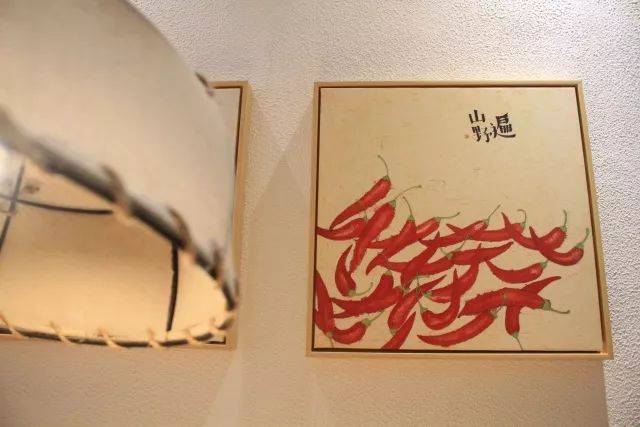 遍
山野